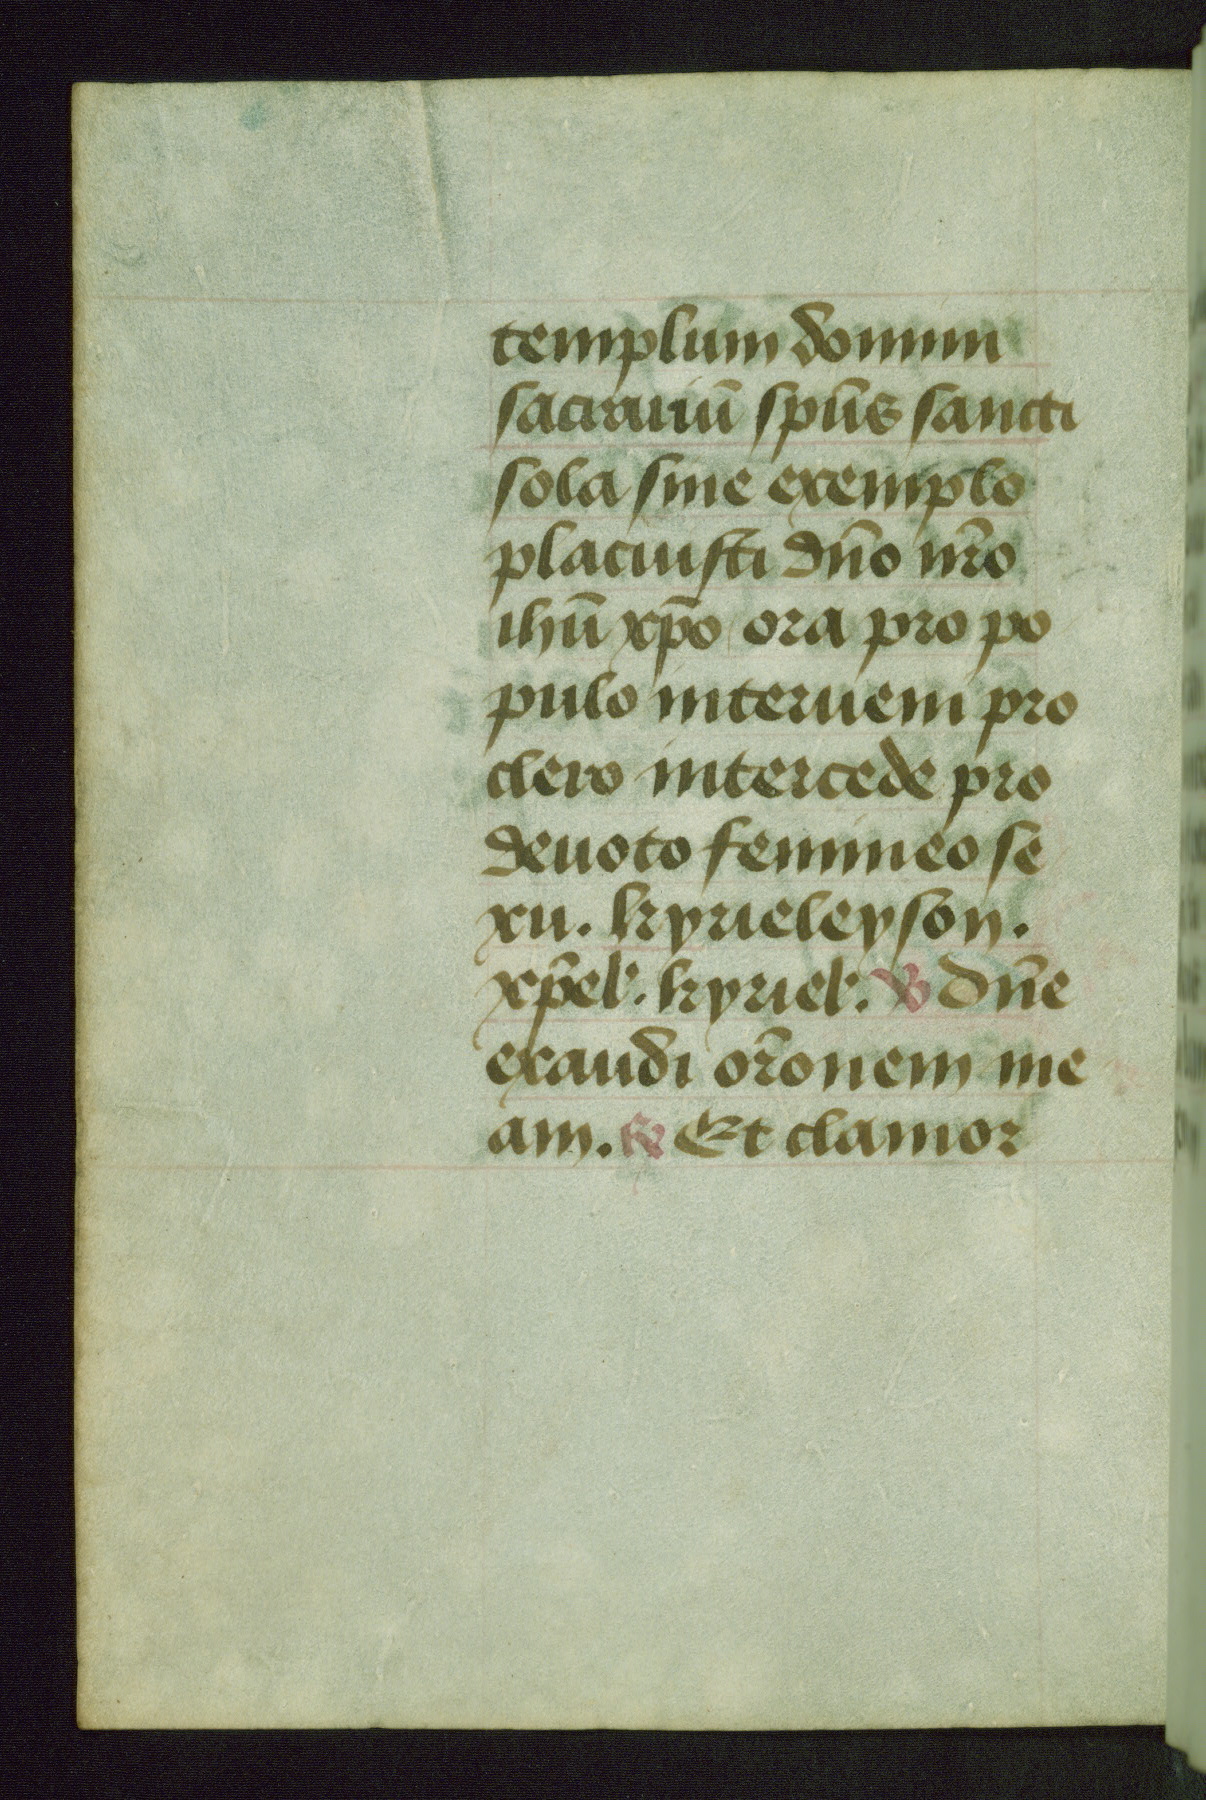 templum domini
sacrariū spūs sancti
sola sine exemplo
placuisti dño nr̃o
ihū xp̄o ora pro po
pulo interueni pro
clero intercede pro
deuoto femineo se
xu. kyrieleyson.
xp̄el'. kyriel'. ℣ Dn̄e
exaudi or̄onem me
am. ℟ Et clamor